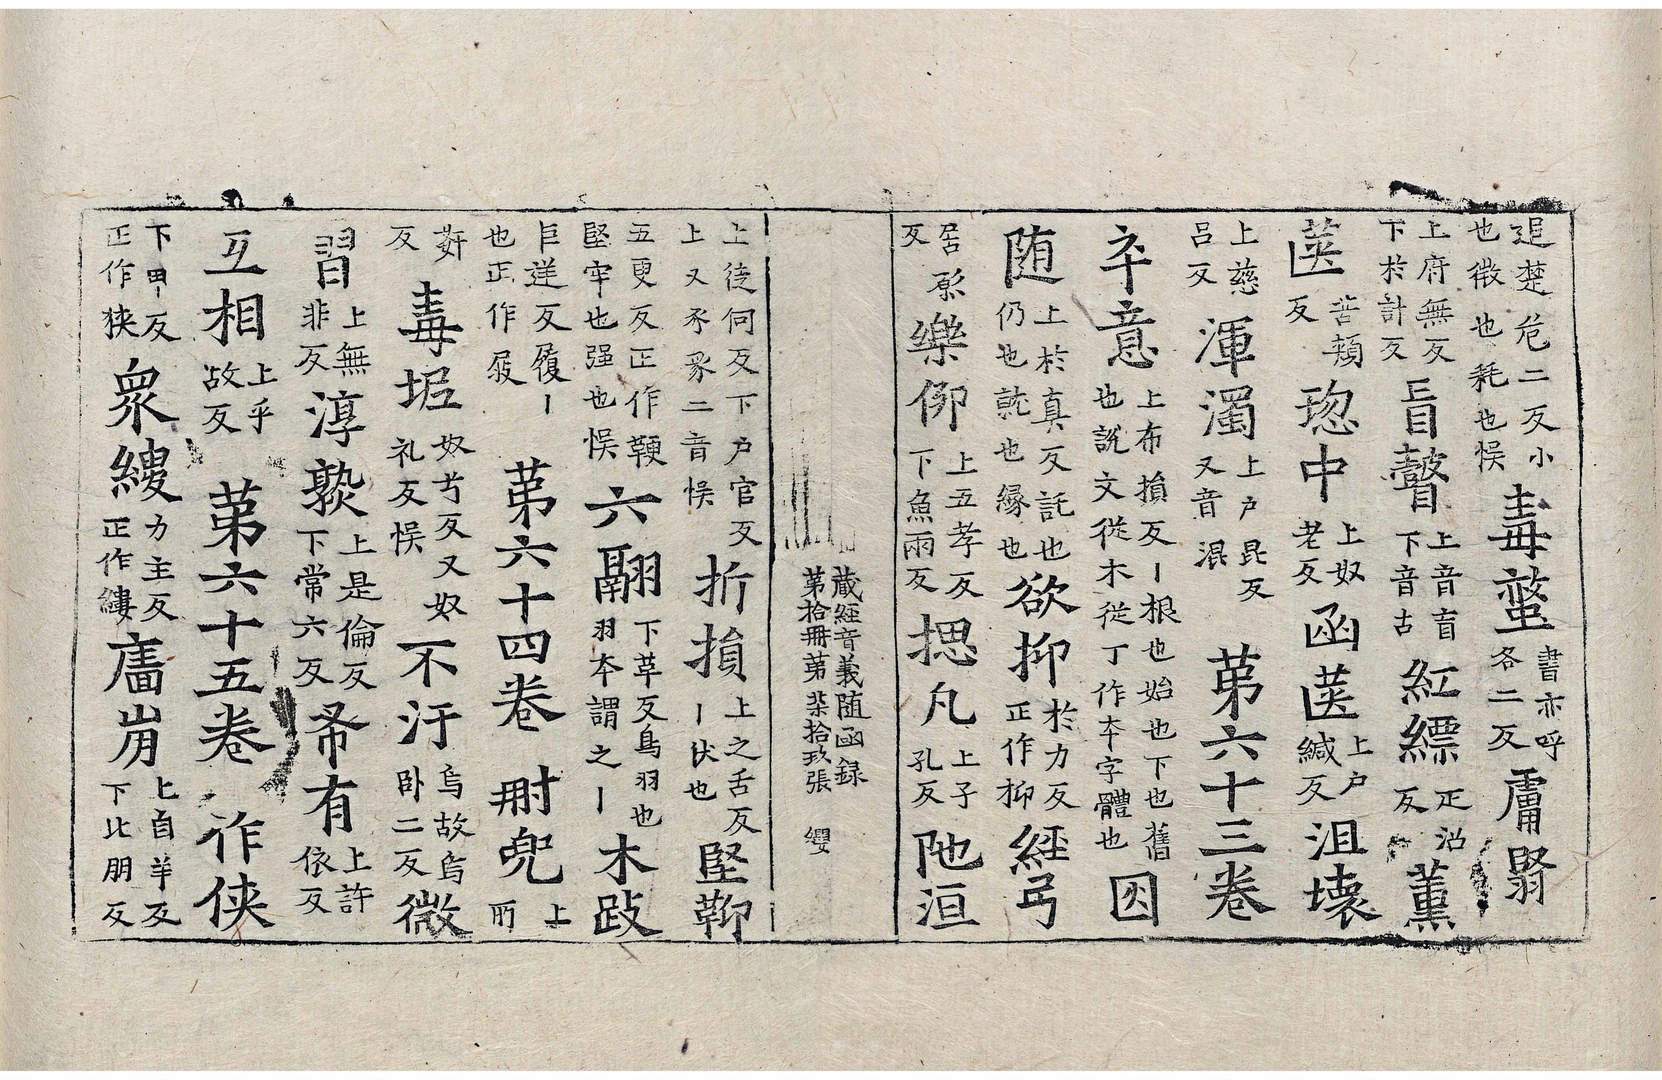 追楚危二反小也微也耗也悮毒螫書亦呼各二反膚翳
上府無反下於計反盲瞽上音盲下音古紅縹疋沼反薰
篋苦頰反㧾中上奴老反函篋上戶緘反沮壞
上慈呂反渾濁上戶昆反又音混第六十三卷
夲意上布損反丨根也始也下也舊也說文從木從丁作本字體也因
随上於真反託也仍也就也縁也欲抑於力反正作抑經弓
居反樂仰上五孝反下魚兩反揔凡上子孔反阤洹
藏經音義随函録第拾冊第柒拾玖張 纓
上徒何反下戶官反上又豸二音悮折損上之舌反丨伏也堅鞕
五更反正作鞕堅牢也强也悮六翮下革反鳥羽也羽本謂之丨木跂
巨逆反履丨也正作屐第六十四卷 兕上
反毒垢奴礼反悮不汙烏故烏臥二反微
習上無非反淳熟上是倫反下常六反希有上許依反
互相上乎故反第六十五卷作俠
下甲反正作狹衆縷力主反正作縷上自羊反下比朋反